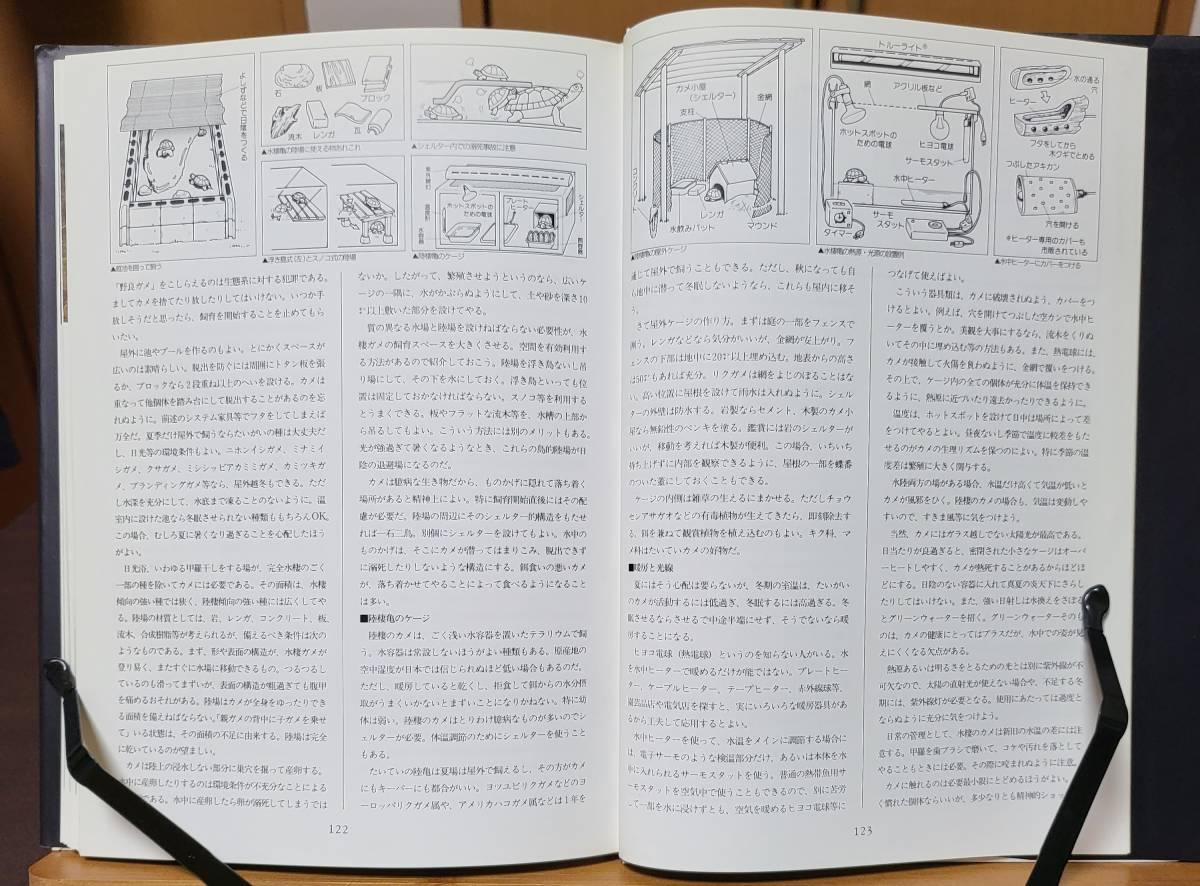 よしずなどで日陰をつくる
石
板
ブロック
流木
レンガ
瓦
▲シェルター内での溺死事故に注意
ホットスポットの
ための電球
プレート
ヒーター
シェルター
▲浮き島式(左)とスノコ式の陸場
▲陸棲亀のケージ
「野良ガメ」をこしらえるのは生態系に対する犯罪である。
ましてカメを捨てたり放したりしてはいけない。いつか手
放しそうだと思ったら、飼育を開始することを止めてもら
いたい。
屋外に池やプールを作るのもよい。とにかくスペースが
広いのは素晴らしい。脱出を防ぐには周囲にトタン板を張
るか、ブロックなら2段重ね以上のへいを設ける。カメは
重なって他個体を踏み台にして脱出することがあるのを忘
れぬように。前述のシステム家具等でフタをしてしまえば
万全だ。夏季だけ屋外で飼うならたいがいの種は大丈夫だ
し、日光等の環境条件もよい。ニホンイシガメ、ミナミイ
シガメ、クサガメ、ミシシッピアカミミガメ、カミツキガ
メ、ブランディングガメ等なら、屋外越冬もできる。ただ
し水深を充分にして、水底まで凍ることのないように。温
室内に設けた池なら冬眠させられない種類ももちろんOK。
この場合、むしろ夏に暑くなり過ぎることを心配したほう
がよい。
日光浴、いわゆる甲羅干しをする場が、完全水棲のごく
一部の種を除いてカメには必要である。その面積は、水棲
傾向の強い種では狭く、陸棲傾向の強い種には広くしてや
る。陸場の材質としては、岩、レンガ、コンクリート、板、
流木、合成樹脂等が考えられるが、備えるべき条件は次の
ようなものである。まず、形や表面の構造が、水棲ガメが
登り易く、またすぐに水場に移動できるもの。つるつるし
ているのも滑ってまずいが、表面の構造が粗過ぎても腹甲
を痛めるおそれがある。陸場はカメが全身をゆったりでき
る面積を備えねばならない。「親ガメの背中に子ガメを乗せ
て」いる状態は、その面積の不足に由来する。陸場は完全
に乾いているのが望ましい。
カメは陸上の浸水しない部分に巣穴を掘って産卵する。
水中に産卵したりするのは環境条件が不充分なことによる
である。水中に産卵したら卵が溺死してしまうでは
ないか。したがって、繁殖させようというのなら、広いケ
ージの一隅に、水がかぶらぬようにして、土や砂を深さ10
㌢以上敷いた部分を設けてやる。
質の異なる水場と陸場を設けねばならない必要性が、水
棲ガメの飼育スペースを大きくさせる。空間を有効利用す
る方法があるので紹介しておこう。陸場を浮き島ないし吊
り場にして、その下を水にしておく。浮き島といっても位
置は固定しておかなければならない。スノコ等を利用する
とうまくできる。板やフラットな流木等を、水槽の上部か
ら吊るしてもよい。こういう方法には別のメリットもある。
光が強過ぎて暑くなるようなとき、これらの島的陸場が日
陰の退避場になるのだ。
カメは臆病な生き物だから、ものかげに隠れて落ち着く
場所があると精神上によい。特に飼育開始直後にはその配
慮が必要だ。陸場の周辺にそのシェルター的構造をもたせ
れば一石三鳥。別個にシェルターを設けてもよい。水中の
ものかげは、そこにカメが潜ってはまりこみ、脱出できず
に溺死したりしないような構造にする。餌食いの悪いカメ
が、落ち着かせてやることによって食べるようになること
は多い。
■陸棲亀のケージ
陸棲のカメは、ごく浅い水容器を置いたテラリウムで飼
う。水容器は常設しないほうがよい種類もある。原産地の
空中湿度が日本では信じられぬほど低い場合もあるのだ。
ただし、暖房していると乾くし、拒食して餌からの水分摂
取がうまくいかないとまずいことになりかねない。特に幼
体は弱い。陸棲のカメはとりわけ臆病なものが多いのでシ
ェルターが必要。体温調節のためにシェルターを使うこと
もある。
たいていの陸亀は夏場は屋外で飼えるし、その方がカメ
にもキーパーにも都合がいい。ヨツユビリクガメなどのヨ
ーロッパリクガメ属や、アメリカハコガメ属などは1年を
122
カメ小屋
(シェルター)
支柱
金網
レンガ
水飲みバット
マウンド
トルーライト®
網
アクリル板など
ホットスポットの
ための電球
ヒヨコ電球
サーモスタット
水中ヒーター
タイマー
サーモ
スタット
▲水棲亀の熱源・光源の設置例
水の通る
穴
ヒーター
フタをしてから
木クギでとめる
つぶしたアキカン
穴を開ける
*ヒーター専用のカバーも
市販されている
▲水中ヒーターにカバーをつける
通じて屋外で飼うこともできる。ただし、秋になっても自
ら地中に潜って冬眠しないようなら、これらも屋内に移そ
う。
さて屋外ケージの作り方。まずは庭の一部をフェンスで
囲う。レンガなどなら気分がいいが、金網が安上がり。フ
ェンスの下部は地中に20㌢以上埋め込む。地表からの高さ
は50㌢もあれば充分。リクガメは網をよじのぼることはな
い。高い位置に屋根を設けて雨水は入れぬように。シェル
ターの外壁は防水する。岩製ならセメント、木製のカメ小
屋なら無鉛性のペンキを塗る。鑑賞には岩のシェルターが
いいが、移動を考えれば木製が便利。この場合、いちいち
持ち上げずに内部を観察できるように、屋根の一部を蝶番
のついた蓋にしておくこともできる。
ケージの内側は雑草の生えるにまかせる。ただしチョウ
センアサガオなどの有毒植物が生えてきたら、即刻除去す
る。餌を兼ねて観賞植物を植え込むのもよい。キク科、マ
メ科はたいていカメの好物だ。
■暖房と光線
夏にはそう心配は要らないが、冬期の室温は、たいがい
のカメが活動するには低過ぎ、冬眠するには高過ぎる。冬
眠させるならさせるで中途半端にせず、そうでないなら暖
房することになる。
ヒヨコ電球(熱電球)というのを知らない人がいる。水
を水中ヒーターで暖めるだけが能ではない。プレートヒー
ター、ケーブルヒーター、テープヒーター、赤外線球等、
園芸品店や電気店を探すと、実にいろいろな暖房器具があ
るから工夫して応用するとよい。
水中ヒーターを使って、水温をメインに調節する場合に
は、電子サーモのような検温部分だけ、あるいは本体を水
中に入れられるサーモスタットを使う。普通の熱帯魚用サ
ーモスタットを空気中で使うこともできるので、別に苦労
して一部を水に浸けずとも、空気を暖めるヒヨコ電球等に
つなげて使えばよい。
こういう器具類は、カメに破壊されぬよう、カバーをつ
けるとよい。例えば、穴を開けてつぶした空カンで水中ヒ
ーターを覆うとか。美観を大事にするなら、流木をくりぬ
いてその中に埋め込む等の方法もある。また、熱電球には、
カメが接触して火傷を負わぬように、金網で覆いをつける。
その上で、ケージ内の全ての個体が充分に体温を保持でき
るように、熱源に近づいたり遠ざかったりできるようにする。
温度は、ホットスポットを設けて日中は場所によって差
をつけてやるとよい。昼夜ないし季節で温度に較差をもた
せるのがカメの生理リズムを保つのによい。特に季節の温
度差は繁殖に大きく関与する。
水陸両方の場がある場合、水温だけ高くて気温が低いと
カメが風邪をひく。陸棲のカメの場合も、気温は変動しや
すいので、すきま風等に気をつけよう。
当然、カメにはガラス越しでない太陽光が最高である。
日当たりが良過ぎると、密閉された小さなケージはオーバ
ーヒートしやすく、カメが熱死することがあるからほどほ
どにする。日陰のない容器に入れて真夏の炎天下にさらし
たりしてはいけない。また、強い日射しは水換えをさぼる
とグリーンウォーターを招く。グリーンウォーターそのも
のは、カメの健康にとってはプラスだが、水中での姿が見
えにくくなる欠点がある。
熱源あるいは明るさをとるための光とは別に紫外線が不
可欠なので、太陽の直射光が使えない場合や、不足する冬
期には、紫外線灯が必要となる。使用にあたっては過度と
ならぬように充分に気をつけよう。
日常の管理として、水棲のカメは新旧の水温の差には注
意する。甲羅を歯ブラシで磨いて、コケや汚れを落として
やることもときには必要。その際に咬まれぬように注意。
カメに触れるのは必要最小限にとどめるほうがよい。
く慣れた個体ならいいが、多少なりとも精神的ショッ
123